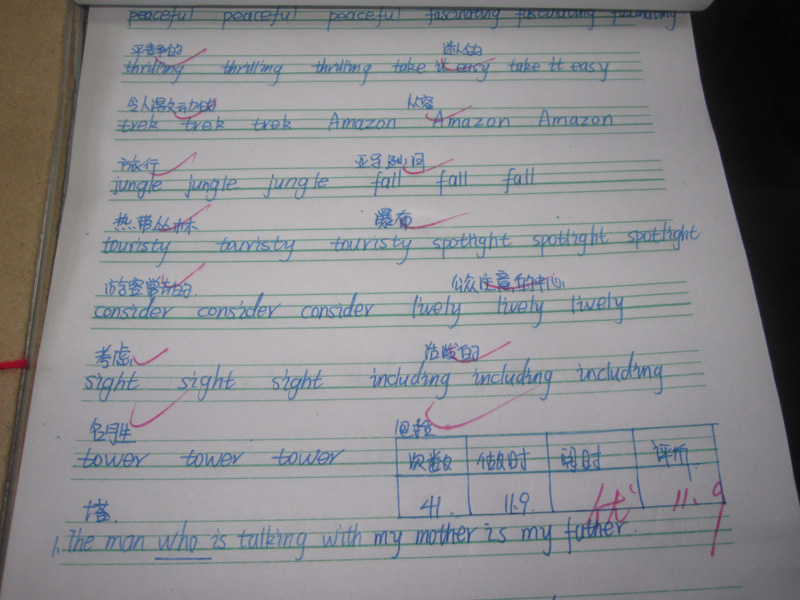 peaceful peaceful peaceful fascinating fascinating fascinating
平静的 迷人的
thrilling thrilling thrilling take it easy take it easy
令人激动的 从容
trek trek trek Amazon Amazon Amazon
旅行 亚马逊河
jungle jungle jungle fall fall fall
热带丛林 瀑布
touristy touristy touristy spotlight spotlight spotlight
游客常去的 公众注意的中心
consider consider consider lively lively lively
考虑 活泼的
sight sight sight including including including
名胜 包括
tower tower tower 次数 做时 改时 评价
塔 41. 11.9 优 11.9
1. The man who is talking with my mother is my father.